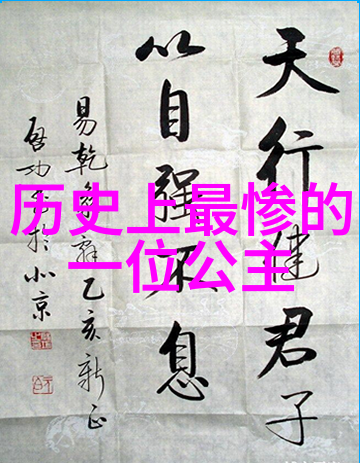 历史上最惨的
一位公主
天行健君子
以自强不息
易乾象辞乙亥新正
启功书于北京